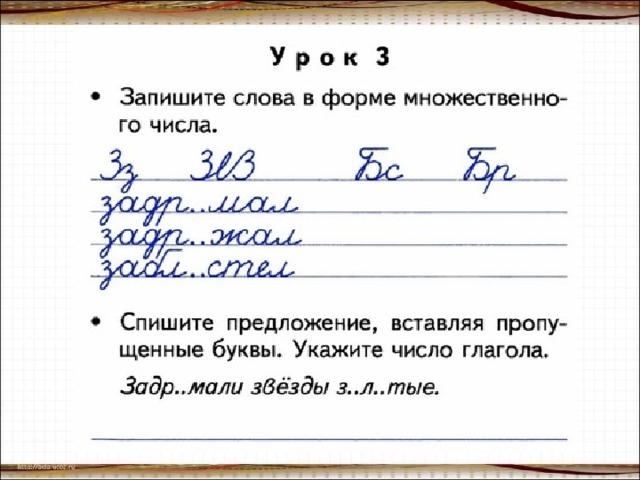 Урок 3
• Запишите слова в форме множественно-
го числа.
Зз ЗвЗ Бс Бр
задр..мал
задр..жал
забл..стел
• Спишите предложение, вставляя пропу-
щенные буквы. Укажите число глагола.
Задр..мали звёзды з..л..тые.